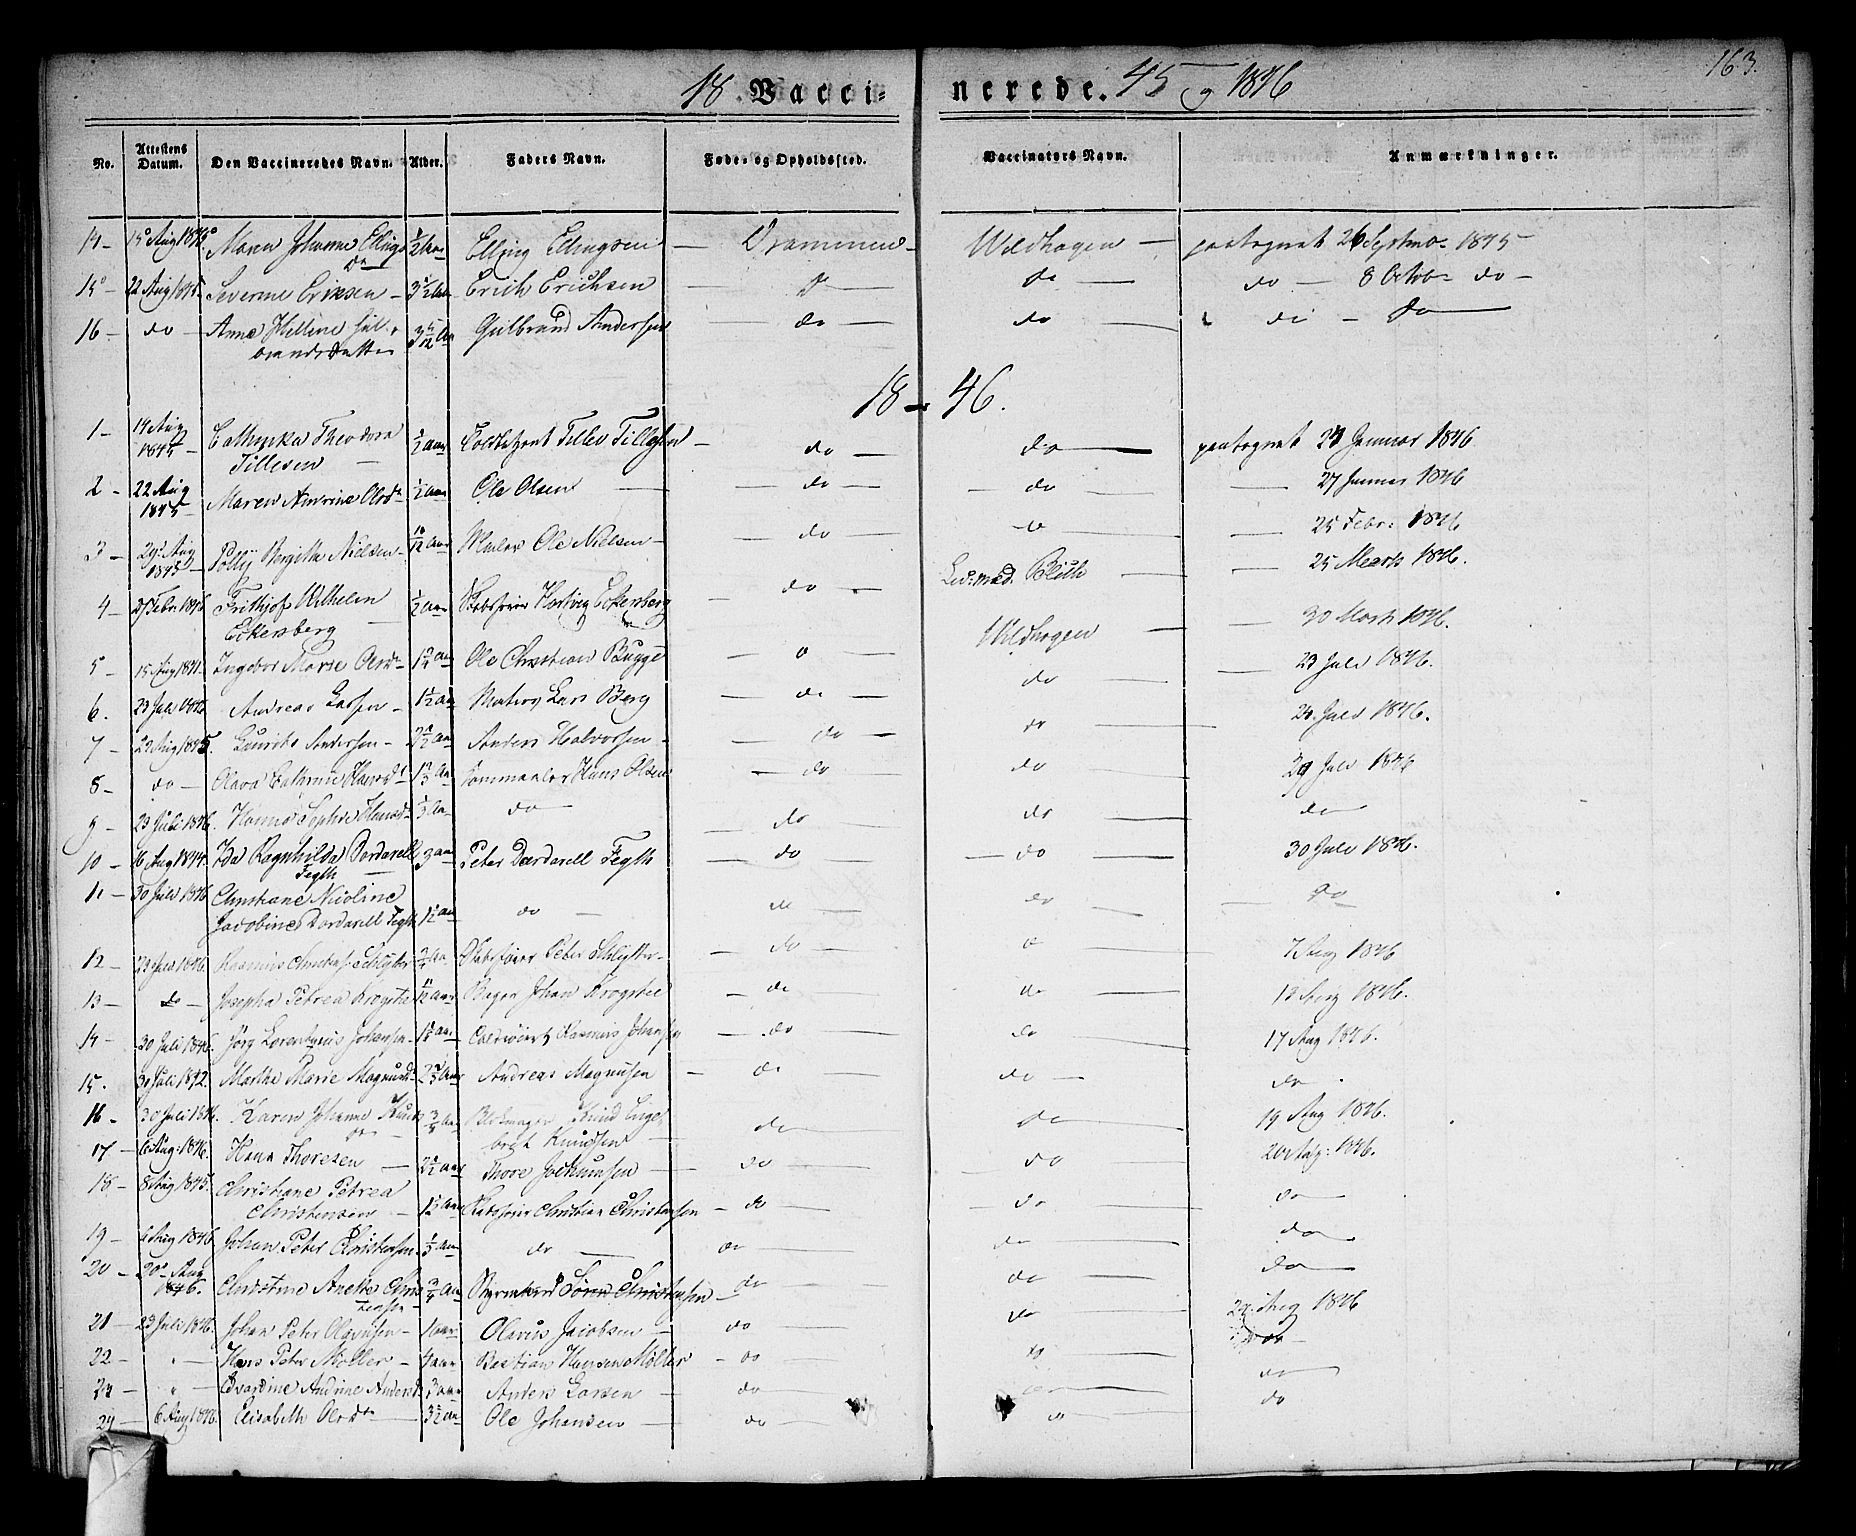 163.
18 Vacci- nerede. 45 og 1846
No. Attestens Datum. Den Vaccineredes Navn. Alder. Faders Navn. Fødes og Opholdssted. Vaccinators Navn. Anmærkninger.
14 - 15 Aug 1845 Maren Johanne Ellings 1/2 Aar Elling Ellingsen - Drammen - Wildhagen - paategnet 26 Septmbr 1845
Da
15 22 Aug 1845 Severine Eriksen - 3 1/2 Aar Erich Erichsen - do - do - do - 8 Octobr do -
16 - do - Anne Helline Gul- Gulbrand Andersen - do - do - do - do
brandsdatter
18 - 46.
1 - 14 Aug 1845 - Cathinka Theodora 1/2 aar Toldbetjent Tilles Tillesen - do - do - paategnet 24 Januar 1846
Tillesen -
2 - 22 Aug 1845 - Maren Amrine Olsdr 1/2 aar Ole Olsen - do - - do - - 27 Januar 1846
3 - 29 Aug 1845 - Polly Bergitte Nielsen - 10/12 aar Maler Ole Nielsen - - do - - 25 Febr. 1846
4 - Febr 1846 Frithjof Wilhelm 1/2 aar Skibsfører Hartvig Eckersberg - do - Lic. med. Blich - - 25 Marts 1846.
Eckersberg -
5 - 15 Aug 1841. Ingebor Marie Olsdr Ole Christian Bugge - - Wildhagen - 30 Marts 1846.
6. 23 Juli 1846 Andreas Larsen - 1 1/2 aar Lars Berg - do - do - - 23 Juli 1846.
7 - 22 Aug 1845. Laurits Andersen - Anders Halvorsen - - do - do - 24 Juli 1846.
8 - do - Olava Cathrine Hansdr Hans Olsen - do - do - 29 Juli 1846
9 - 23 Juli 1846. Hanna Sophie Hansdr 1/3 Aa do - - do - do - do -
10 - 6 Aug 1844. Ida Ragnhilda Dardarell 3 aar Peter Dardarell Fegth - do - - do - 30 Juli 1846.
Fegth -
11 - 30 Juli 1846 Christiane Nicoline
Jacobine Dardarell Fegth 1 1/2 aar do - do - do - - do -
12 - 23 Juli 1846. Rasmus Schlytter 3/4 Aa Skibsfører Peter Schlytter - - do - - 7 Aug 1846
13 - do - Josepha Petrea Krogstie 11/12 aar Bager Johan Krogstie - do - do - 13 Aug 1846.
14 - 30 Juli 1846. Jörg Lorentzius Johansen - Rasmus Johansen - do - do - 17 Aug 1846.
15. 30 Juli 1842. Marthe Marie Magnusd 2 2/3 Aar Andreas Magnusen - do - do - do.
16 - 30 Juli 1846. Karen Johanne Knuds 3/4 Aar Knud Engel- do - do - 19 Aug 1846.
da - bret Knudsen -
17 - 6 Aug. 1846. Hans Thoresen - Thore Jochumsen - do - - do - 20 Aug. 1846.
18 - 8 Aug 1845. Christiane Petrea
Christensen - Skibsfører Christian Christensen - do - - do - do -
19 - 6 Aug 1846 Johan Peter Christensen - 1/3 aar do - do - do - do -
20 - 20 Aug 1846. Christine Anette Chris- 3/4 Aar Styrmand Sörn Christensen - do - do - do -
tensen -
21 - 23 Juli 1846. Johan Peter Olavusen - Olavus Jacobsen - do - do - 24 Aug 1846
22 - " - Hans Peter Møller - 4 aar Bastian Hansen Møller - do - do - do -
23 - " - Edvardine Andrine Andersd 3 aar Anders Larsen - do - do - do -
24 - 6 Aug 1846. Elisabeth Olsdr - 3 1/2 aar Ole Johansen - do - - do